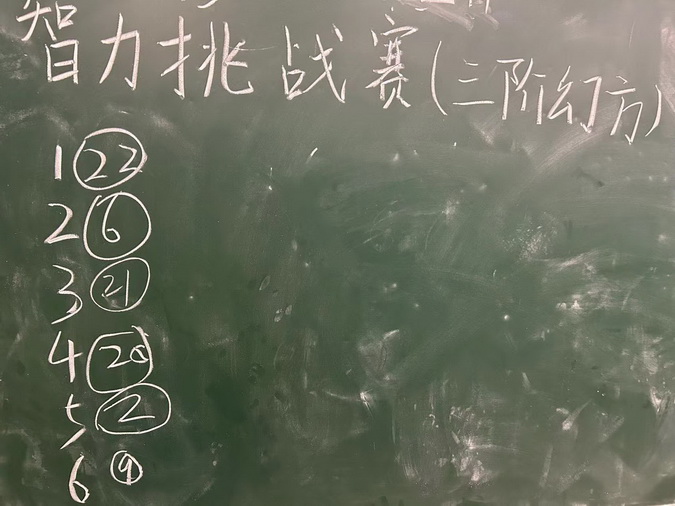 智力挑战赛(三阶幻方)
1 22
2 6
3 21
4 20
5 2
6 9